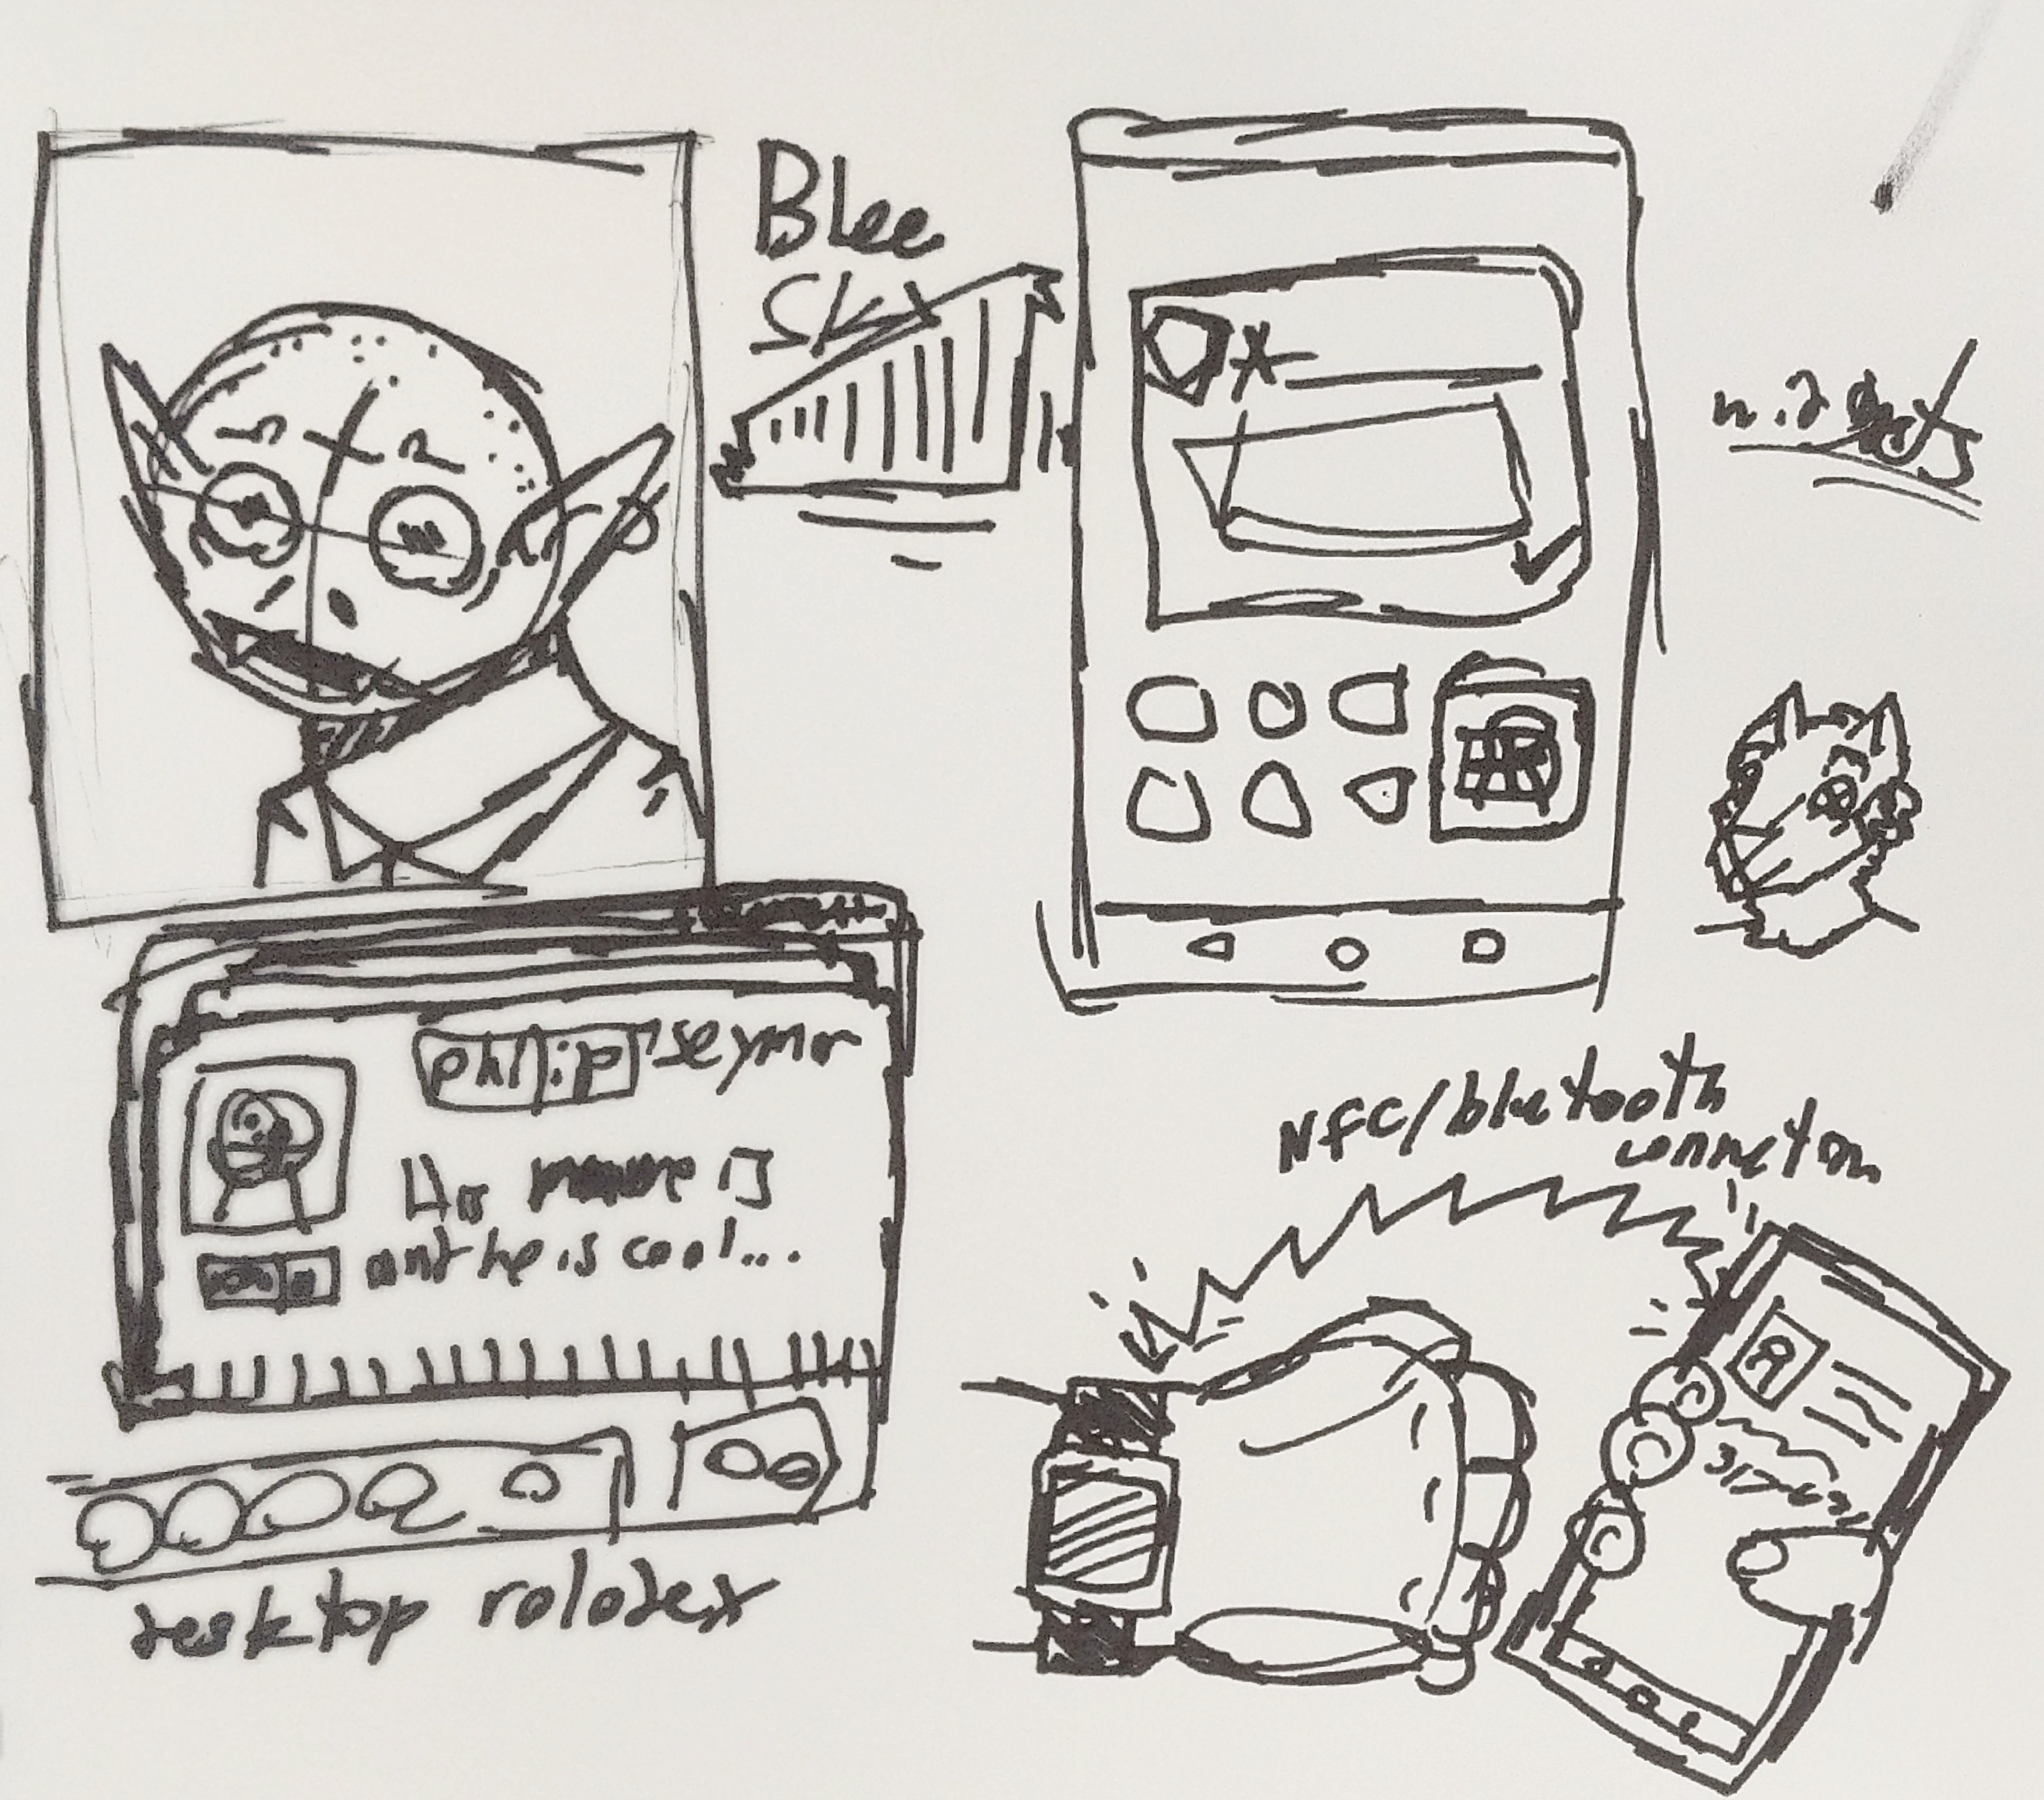 Blee
Sky
widgets
phllip seymor
His name is
and he is cool...
desktop rolodex
NFC/bluetooth
connecton